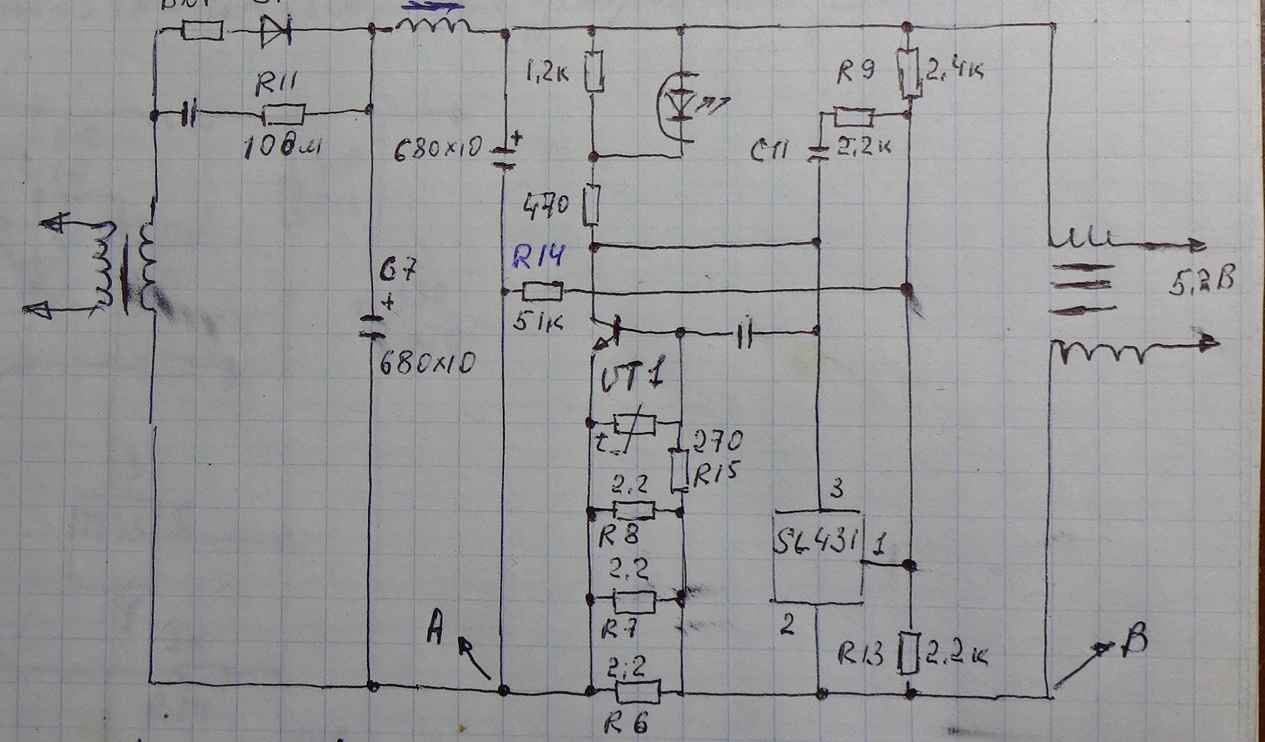 R11
10 Ом
1,2к
R9
2,4к
680×10
+
C11
2,2к
470
R14
51к
C7
+
680×10
5,2В
VT1
t
270
R15
2,2
R8
3
SL431
1
2,2
R7
2
A
B
R13
2.2к
2,2
R6